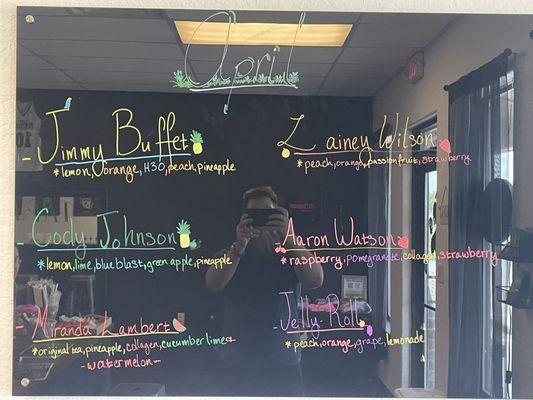 April
Jimmy Buffet
*lemon, orange, H3O, peach, pineapple
Lainey Wilson
*peach, orange, passionfruit, strawberry
Cody Johnson
*lemon, lime, blue blast, green apple, pineapple
Aaron Watson
*raspberry, pomegranate, collagen, strawberry
Miranda Lambert
*original tea, pineapple, collagen, cucumber lime
-watermelon-
Jelly Roll
*peach, orange, grape, lemonade